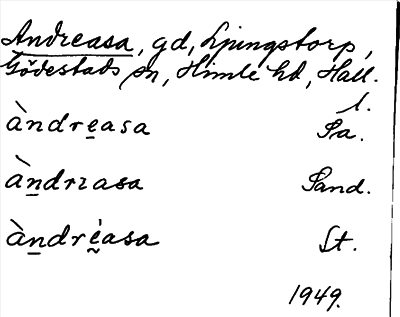 Andreasa, gd, Ljungstorp,
Gödestads sn, Himle hd, Hall.
l.
àndre̲asa Pa.
àn̲drɪasa Sand.
àn̲drḛ̇asa St.
1949.